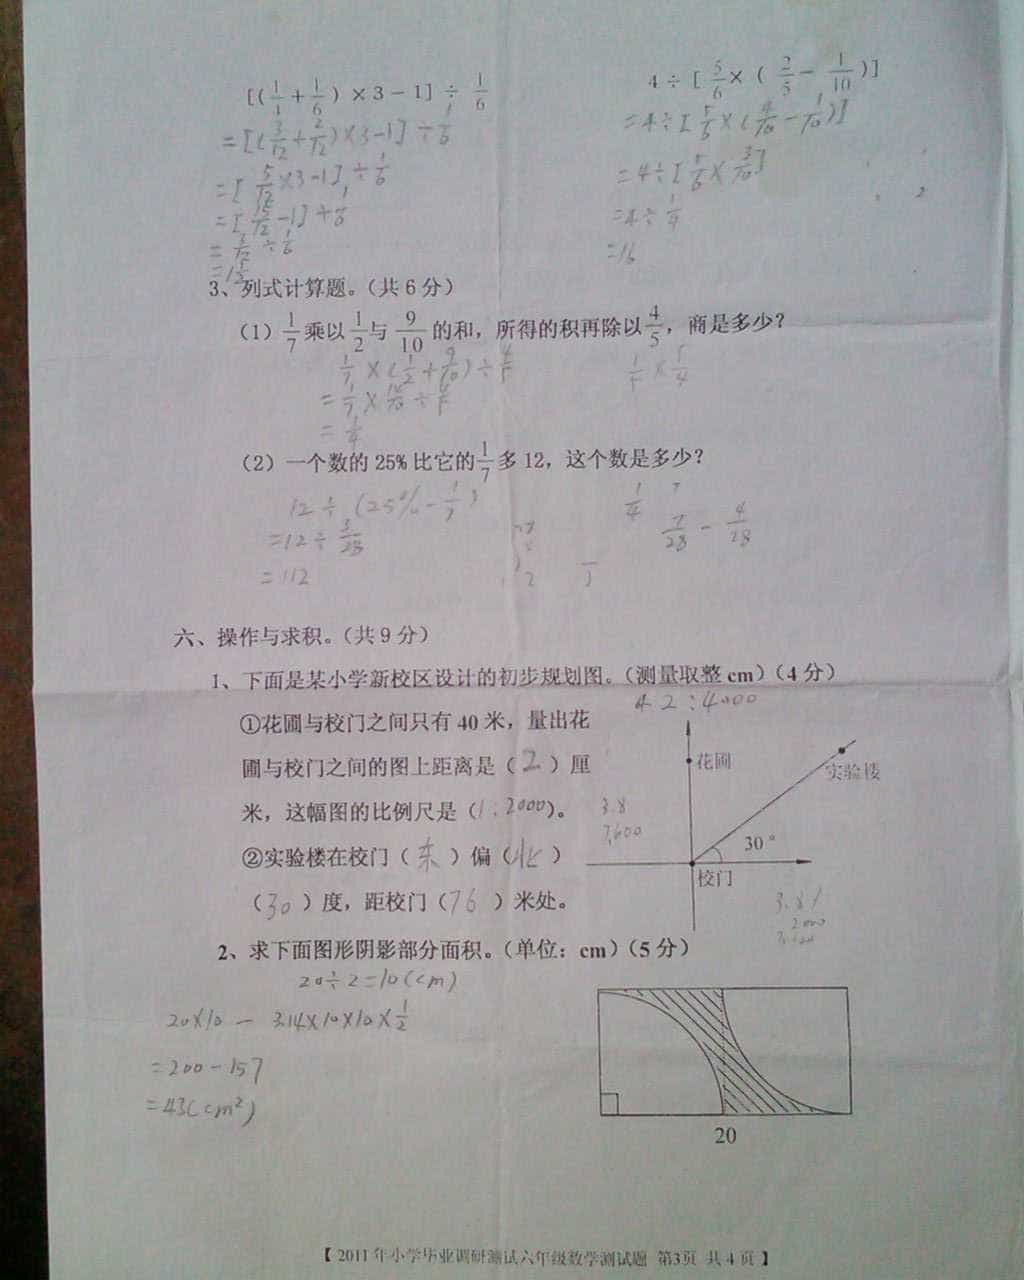 [(1/4+1/6)×3-1]÷1/6
=[(3/12+2/12)×3-1]÷1/6
=[5/12×3-1]÷1/6
=[15/12-1]÷1/6
=3/12÷1/6
4÷[5/6×(2/5-1/10)]
=4÷[5/6×(4/10-1/10)]
=4÷[5/6×3/10]
=4÷1/4
=16
3、列式计算题。(共6分)
(1) 1/7乘以1/2与9/10的和，所得的积再除以4/5，商是多少?
1/7×(1/2+9/10)÷4/5
=1/7×14/10÷4/5
=1/4
1/5×5/4
(2) 一个数的25%比它的1/7多12，这个数是多少?
12÷(25%-1/7)
=12÷3/28
=112
1/4
7/28-4/28
六、操作与求积。(共9分)
1、下面是某小学新校区设计的初步规划图。(测量取整cm)(4分)
2:4000
①花圃与校门之间只有40米，量出花
圃与校门之间的图上距离是(2)厘
米，这幅图的比例尺是(1:2000)。
②实验楼在校门(东)偏(北)
(30)度，距校门(76)米处。
花圃
实验楼
30°
校门
3.8
7600
2000
2、求下面图形阴影部分面积。(单位：cm)(5分)
20÷2=10(cm)
20×10-3.14×10×10×1/2
=200-157
=43(cm²)
20
【2011年小学毕业调研测试六年级数学测试题 第3页 共4页】